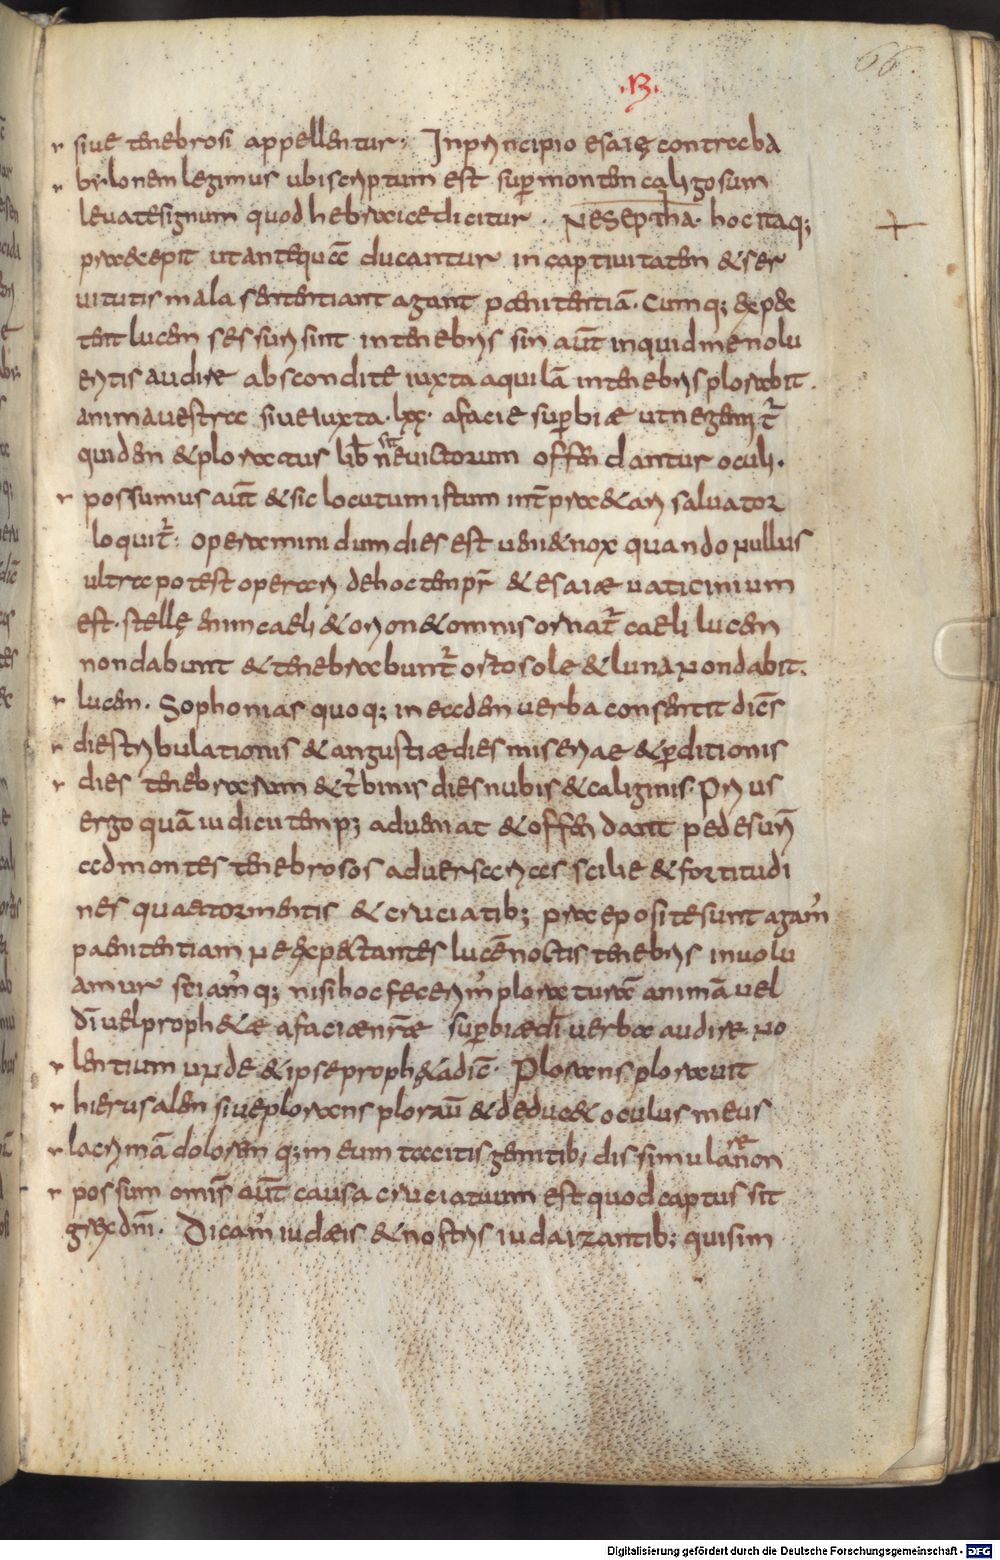 66.
.B.
siue tenebrosi appellentur; Inprincipio esaię contra ba
bylonem legimus ubiscriptum est supermontem caligosum
leuatesignum quod hebraicedicitur. Nesephtha. hoc itaq;
praecepit ut antequā ducantur incaptiuitatem & ser
uitutis mala sententiant agant paenitentiā. Cumq; expec
tent lucem sessurisint intenebris sin aūt inquid menolu
eritis audire abscondite iuxta aquilā intenebris plorabit.
animauestra siue iuxta. lxx. afacie superbiae
quidem & ploraturus lib̄ sit neuictorum offendantur oculi.
possumus aūt & sic locutum istum int̄praetari saluator
loquit̄; operamini dum dies est ueni& nox quando nullus
ultra potest operari dehoc tempr̄ & esaiae uaticinium
est. stellę enim caeli & orion & omnis ornat̄ caeli lucem
nondabunt & tenebrabunt̄ orto sole & luna nondabit.
lucem. Sophonias quoq; ineadem uerba consentit diēs
dies tribulationis & angustiae dies miseriae & perditionis
dies tenebrarum & t̄binis dies nubis & caliginis. Prius
ergo quā iudicii temp; adueniat & offendant pedes ur̄i
ad montes tenebrosos aduersarias scilic & fortitudi
nes quae tormentis & cruciatib; praepositesunt agam̄
paenitentiam ne expectantes lucē noctis tenebris inuolu
amur sciam̄q; nisi hoc fecerim̄ ploraturā animā uel
dī uel proph&ae afaciaenr̄ae superbiae dī uerba audire no
lentium unde & ipse proph&a dic̄. Plorans plorauit
hierusalem siue plorans plorau̅ & deduc& oculus meus
lacrimā dolorem q;m eum tacitis gemitib; dissimulare non
possum omīs aūt causa cruciatuum est quod captus sit
grex dnī. Dicam̄ iudaeis & nostris iudaizantib; quisim
Digitalisierung gefördert durch die Deutsche Forschungsgemeinschaft - DFG